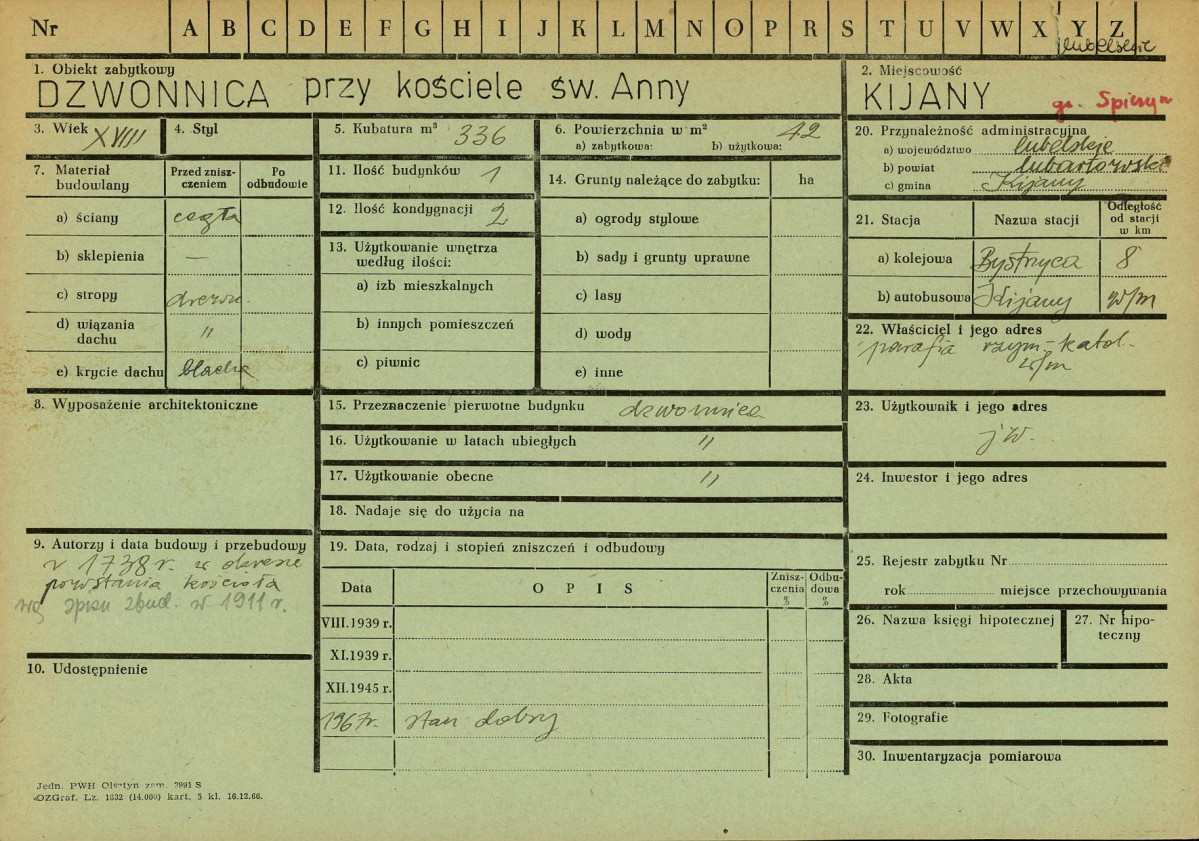 Nr A B C D E F G H I J K L M N O P R S T U V W X Y Z
lubelskie
1. Obiekt zabytkowy
DZWONNICA przy kościele św. Anny
2. Miejscowość
KIJANY gr. Spiczyn
3. Wiek XVIII
4. Styl
5. Kubatura m³ 336
6. Powierzchnia w m² 42
a) zabytkowa: b) użytkowa:
7. Materiał budowlany
Przed zniszczeniem
Po odbudowie
a) ściany cegła
b) sklepienia —
c) stropy drewn.
d) wiązania dachu "
e) krycie dachu blacha
8. Wyposażenie architektoniczne
9. Autorzy i data budowy i przebudowy
r 1738 r. w okresie
powstania kościoła
wg spisu zbud. w 1911 r.
10. Udostępnienie
11. Ilość budynków 1
12. Ilość kondygnacji 2
13. Użytkowanie wnętrza
według ilości:
a) izb mieszkalnych
b) innych pomieszczeń
c) piwnic
14. Grunty należące do zabytku: ha
a) ogrody stylowe
b) sady i grunty uprawne
c) lasy
d) wody
e) inne
15. Przeznaczenie pierwotne budynku dzwonnica
16. Użytkowanie w latach ubiegłych "
17. Użytkowanie obecne "
18. Nadaje się do użycia na
19. Data, rodzaj i stopień zniszczeń i odbudowy
Data OPIS Zniszczenia % Odbudowa %
VIII.1939 r.
XI.1939 r.
XII.1945 r.
1967r. stan dobry
20. Przynależność administracyjna
a) województwo lubelskie
b) powiat lubartowski
c) gmina Kijany
21. Stacja Nazwa stacji Odległość od stacji w km
a) kolejowa Bystrzyca 8
b) autobusowa Kijany w/m
22. Właściciel i jego adres
parafia rzym.-katol.
w/m
23. Użytkownik i jego adres
jw.
24. Inwestor i jego adres
25. Rejestr zabytku Nr
rok miejsce przechowywania
26. Nazwa księgi hipotecznej
27. Nr hipoteczny
28. Akta
29. Fotografie
30. Inwentaryzacja pomiarowa
Jedn. PWH Olsztyn zam. 2991 S
OZGraf. Lz. 1832 (14.000) kart. 5 kl. 16.12.66.